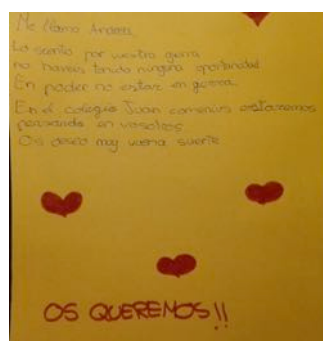 Me llamo Andrea
Lo siento por vuestra guerra
no haveis tenido ninguna oportunidad
En poder no estar en guerra.
En el colegio Juan comenius estaremos
pensando en vosotros
Os deseo muy buena suerte
OS QUEREMOS!!